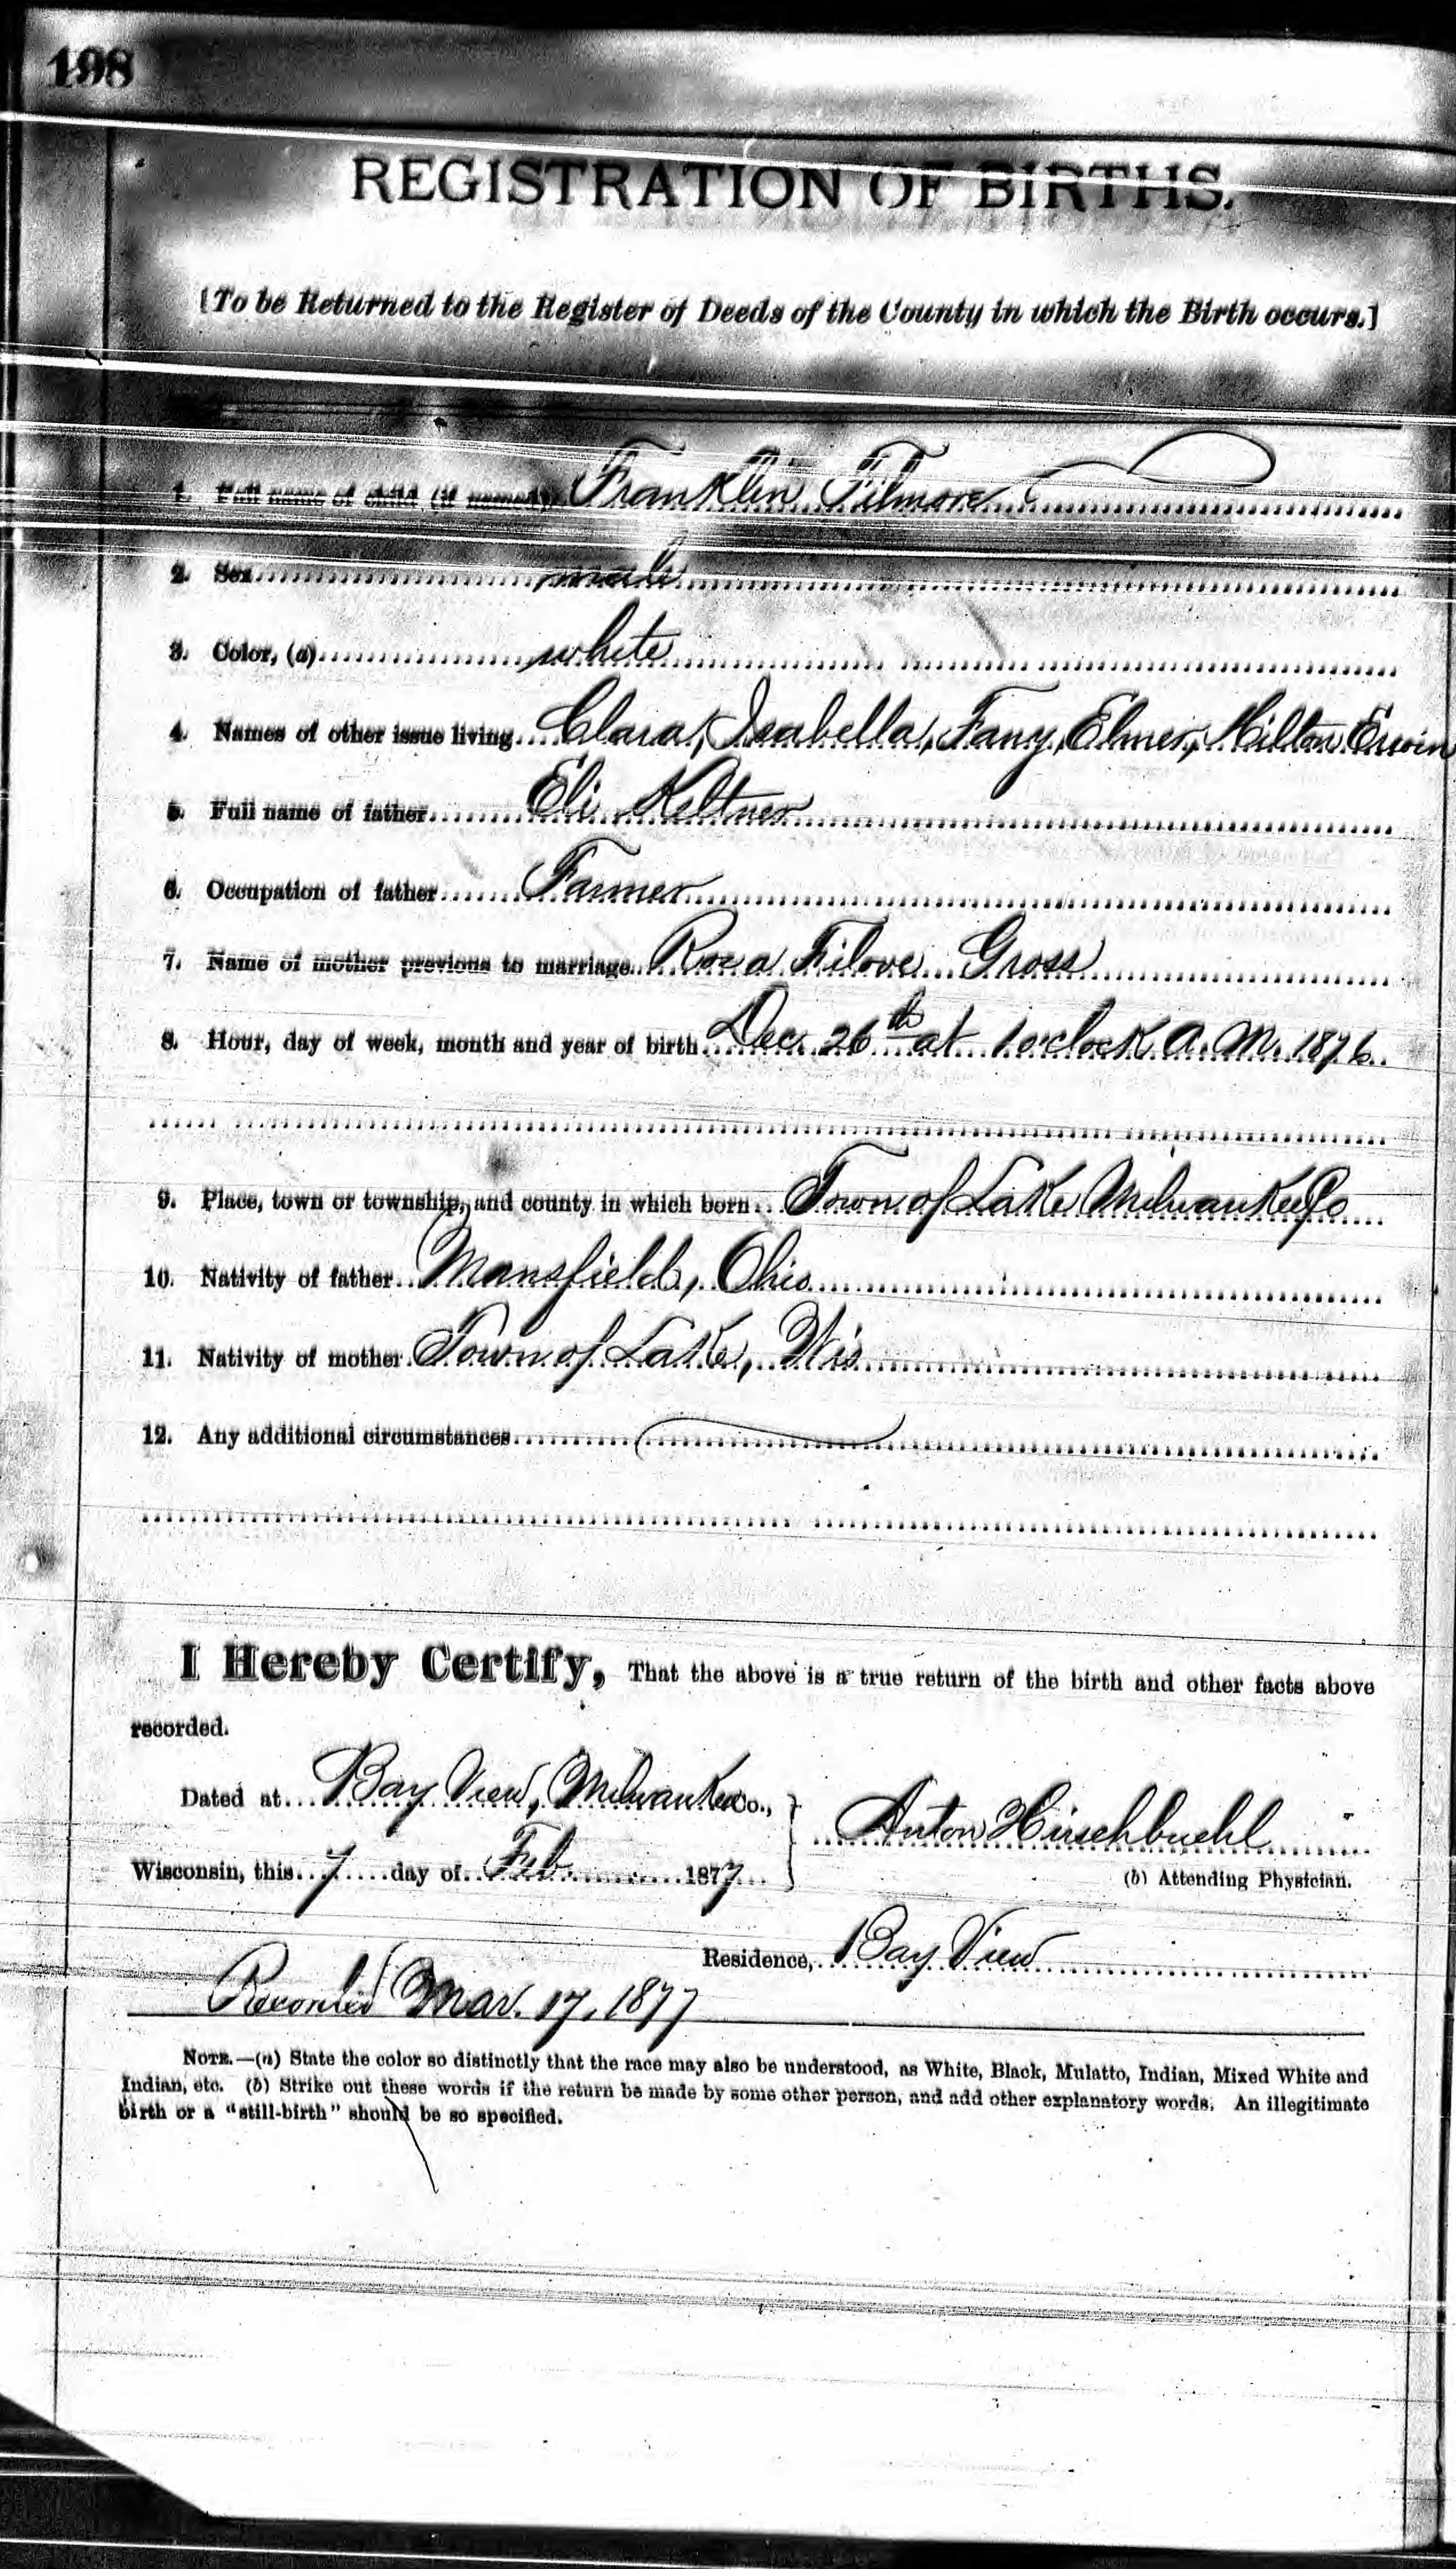 198
REGISTRATION OF BIRTHS.
[To be Returned to the Register of Deeds of the County in which the Birth occurs.]
1. Full name of child (if named) Franklin Filmore
2. Sex male
3. Color, (a) white
4. Names of other issue living Clara, Isabella, Fany, Elmer, Milton Erwin
5. Full name of father Eli Keltner
6. Occupation of father Farmer
7. Name of mother previous to marriage Roza Filove Gross
8. Hour, day of week, month and year of birth Dec. 26th at 1 o'clock A.M. 1876
9. Place, town or township, and county in which born Town of Lake Milwaukee Co
10. Nativity of father Mansfield, Ohio
11. Nativity of mother Town of Lake, Wis
12. Any additional circumstances
I Hereby Certify, That the above is a true return of the birth and other facts above
recorded.
Dated at Bay View, Milwaukee Co.,
Anton Hirschbuehl
Wisconsin, this 7 day of Feb 1877
(b) Attending Physician.
Residence, Bay View
Recorded Mar. 17, 1877
NOTE.—(a) State the color so distinctly that the race may also be understood, as White, Black, Mulatto, Indian, Mixed White and
Indian, etc. (b) Strike out these words if the return be made by some other person, and add other explanatory words. An illegitimate
birth or a "still-birth" should be so specified.